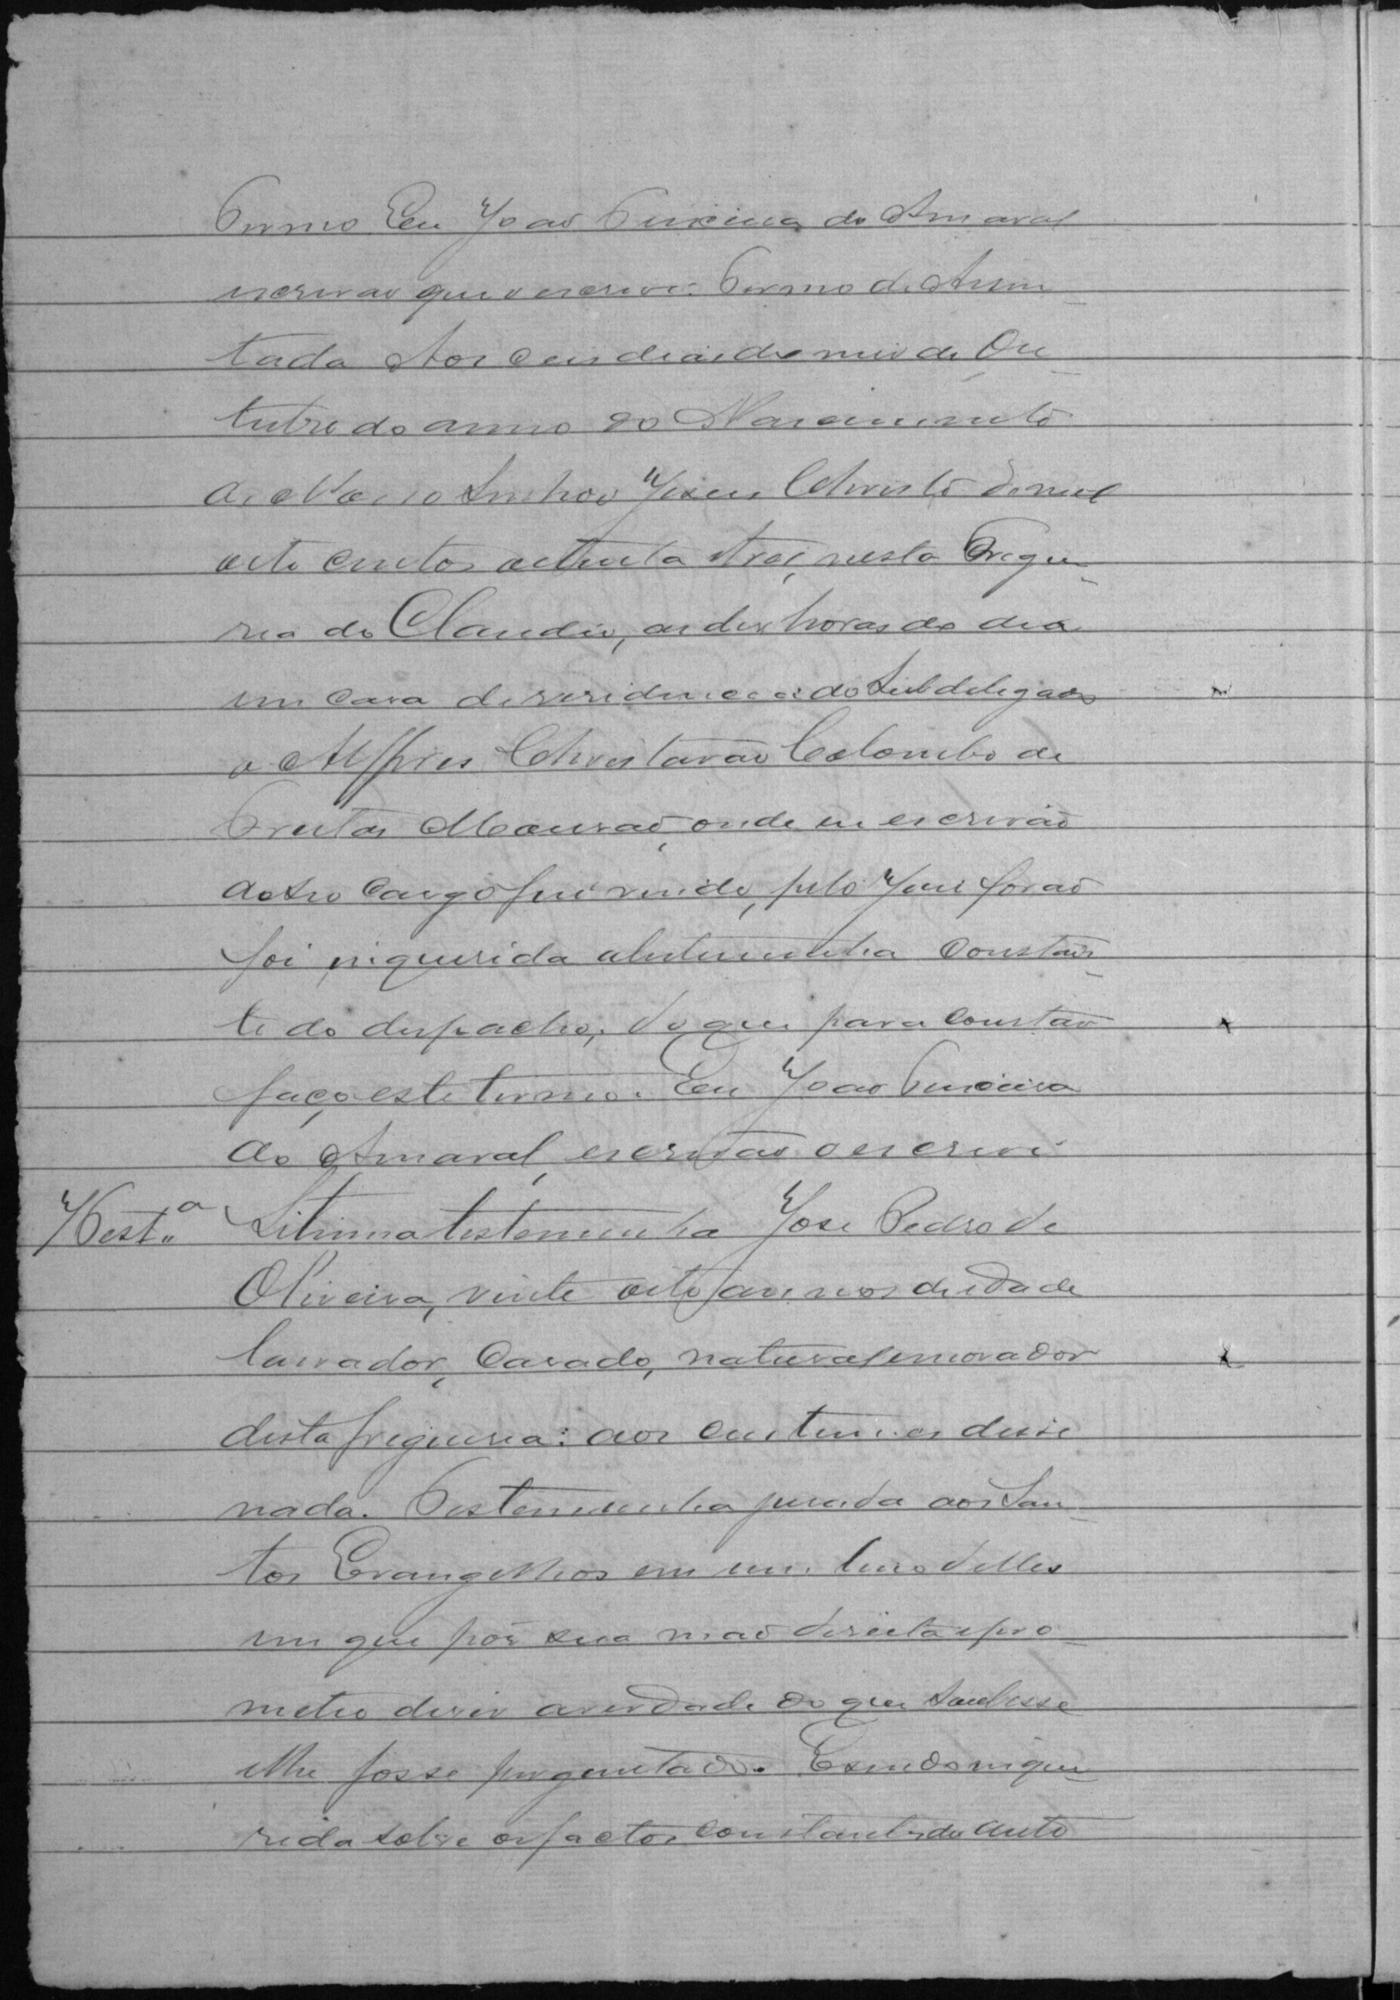 Termo Eu João Teixeira do Amaral
escrivão que o escrevi. Termo de Assen-
tada Aos seis dias do mes de Ou-
tubro do anno do Nascimento
de Nosso Senhor Jesus Christo de mil
oito centos oitenta e tres, nesta Fregue-
sia do Claudio, as dez horas do dia
em casa de residencia do Subdelegado
o Alferes Christovão Colombo de
Freitas Mourão, onde eu escrivão
do seu cargo fui vindo, pelo Juiz
foi enquerida a testemunha constan-
te do despacho; do que para constar
faço este termo. Eu João Teixeira
do Amaral, escrivão o escrevi
7 Test.ª Setima testemunha José Pedro de
Oliveira, vinte oito annos de idade
lavrador, casado, natural e morador
desta freguesia: aos custumes disse
nada. Testemunha jurada aos San-
tos Evangelhos em um livro delles
em que pôs sua mão direita e pro-
meteo diser a verdade do que soubesse
e lhe fosse perguntado. E sendo enque-
rida sobre os factos constantes do auto